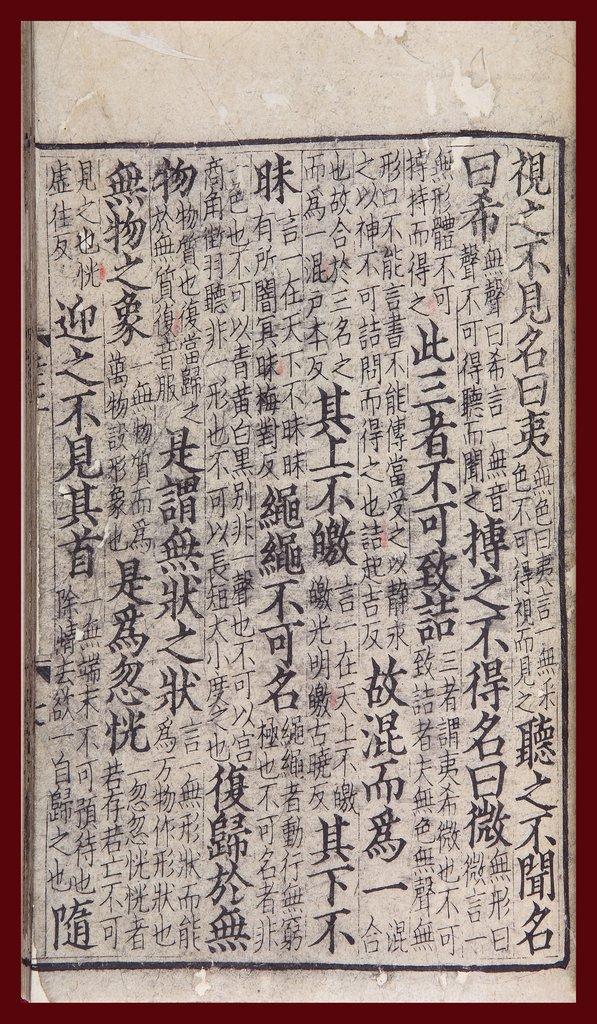 視之不見名曰夷無色曰夷言一無采色不可得視而見之聽之不聞名
曰希無聲曰希言一無音聲不可得聽而聞之搏之不得名曰微無形曰微言一
無形體不可摶持而得之此三者不可致詰三者謂夷希微也不可致詰者夫無色無聲無
形口不能言書不能傳當受之以靜求之以神不可詰問而得之也詰起吉反故混而為一混合
也故合於三名之而為一混戸本反其上不皦言一在天上不皦皦光明皦古曉反其下不
昧言一在天下不昧昧有所闇冥昧梅對反繩繩不可名繩繩者動行無窮極也不可名者非
一色也不可以青黃白黑別非一聲也不可以宮商角徵羽聽非一形也不可以長短大小度之也復歸於無
物物質也復當歸之於無質復音服是謂無狀之狀言一無形狀而能為万物作形狀也
無物之象一無物質而為萬物設形象也是為忽恍一忽忽恍恍者若存若亡不可
見之也恍虛往反迎之不見其首一無端末不可預待也除情去欲一自歸之也隨